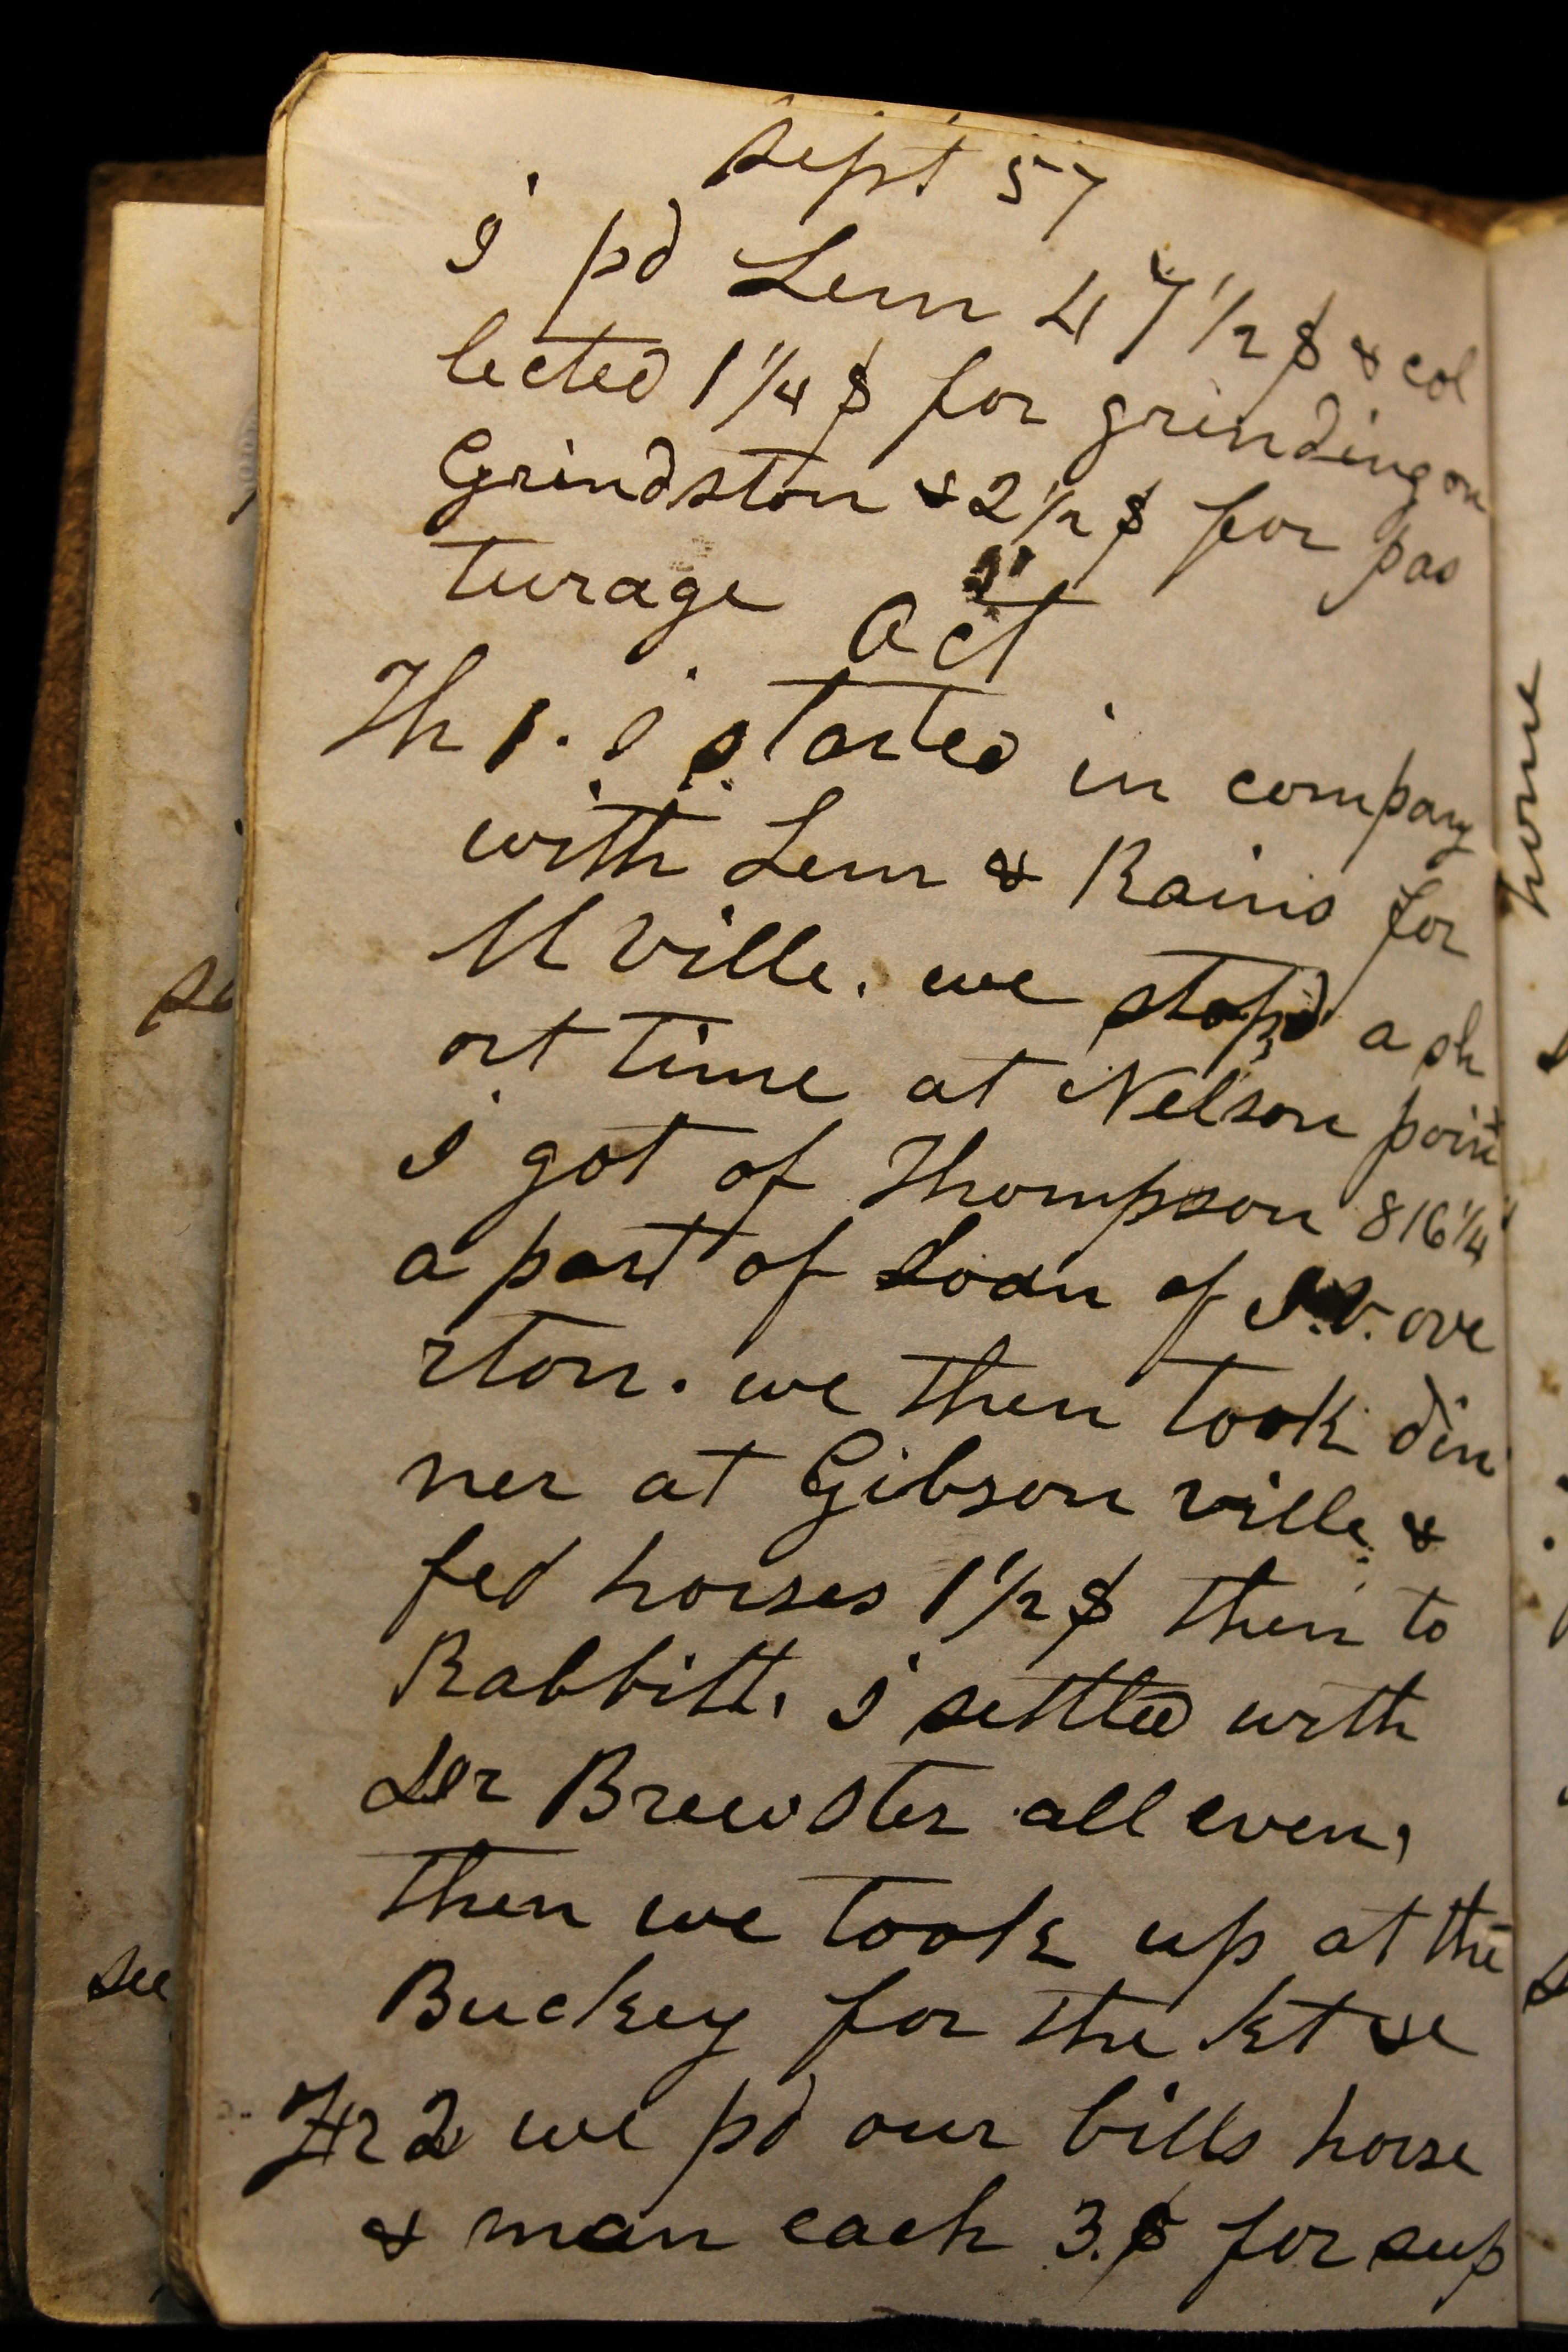 Sept 57
I pd Lem 47 1/2 $ & col
lected 1 1/4 $ for grinding on
Grindston & 2 1/2 $ for pas
turage
Oct
Th 1. I started in company
with Lem & Rains for
M ville. we stopd a sh
ort time at Nelson point
I got of Thompson 816 1/4
a part of Loan of ove
rton. we then took din
ner at Gibson ville &
fed horses 1 1/2 $ then to
Rabbitt. I settled with
Dr Brewster all even,
then we took up at the
Buckey for the
Fr 2 we pd our bills horse
& man each 3.$ for sup
home
see